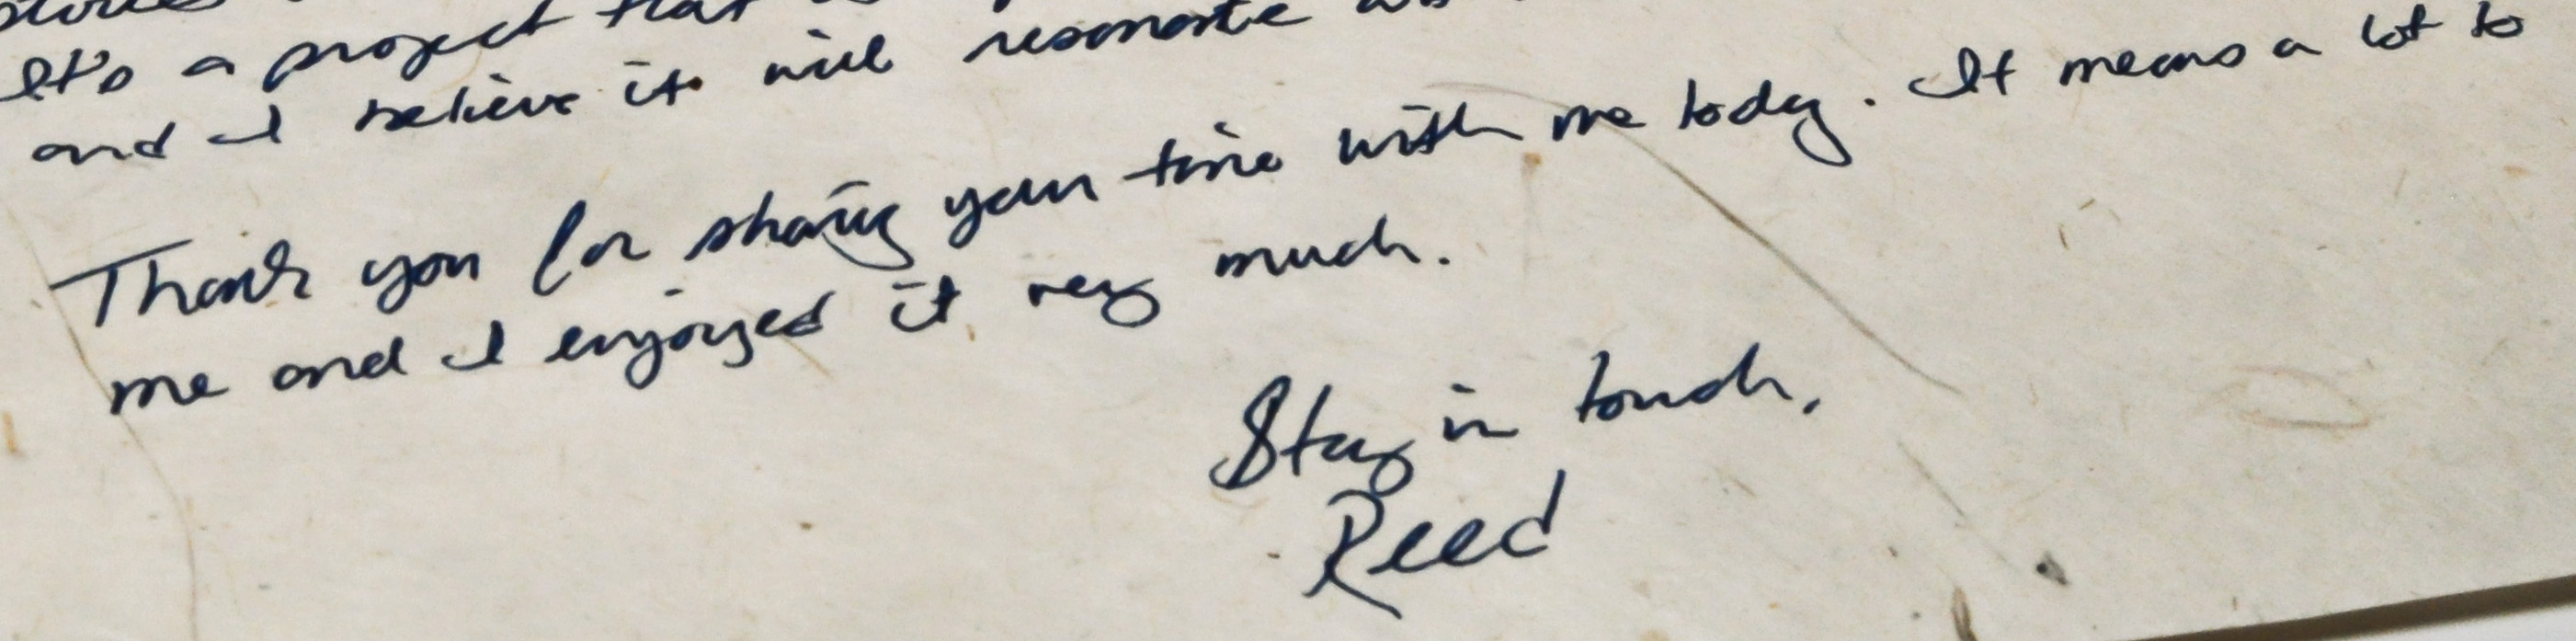 It's a project that
and I believe it will resonate
Thank you for sharing your time with me today. It means a lot to
me and I enjoyed it very much.
Stay in touch,
Reed